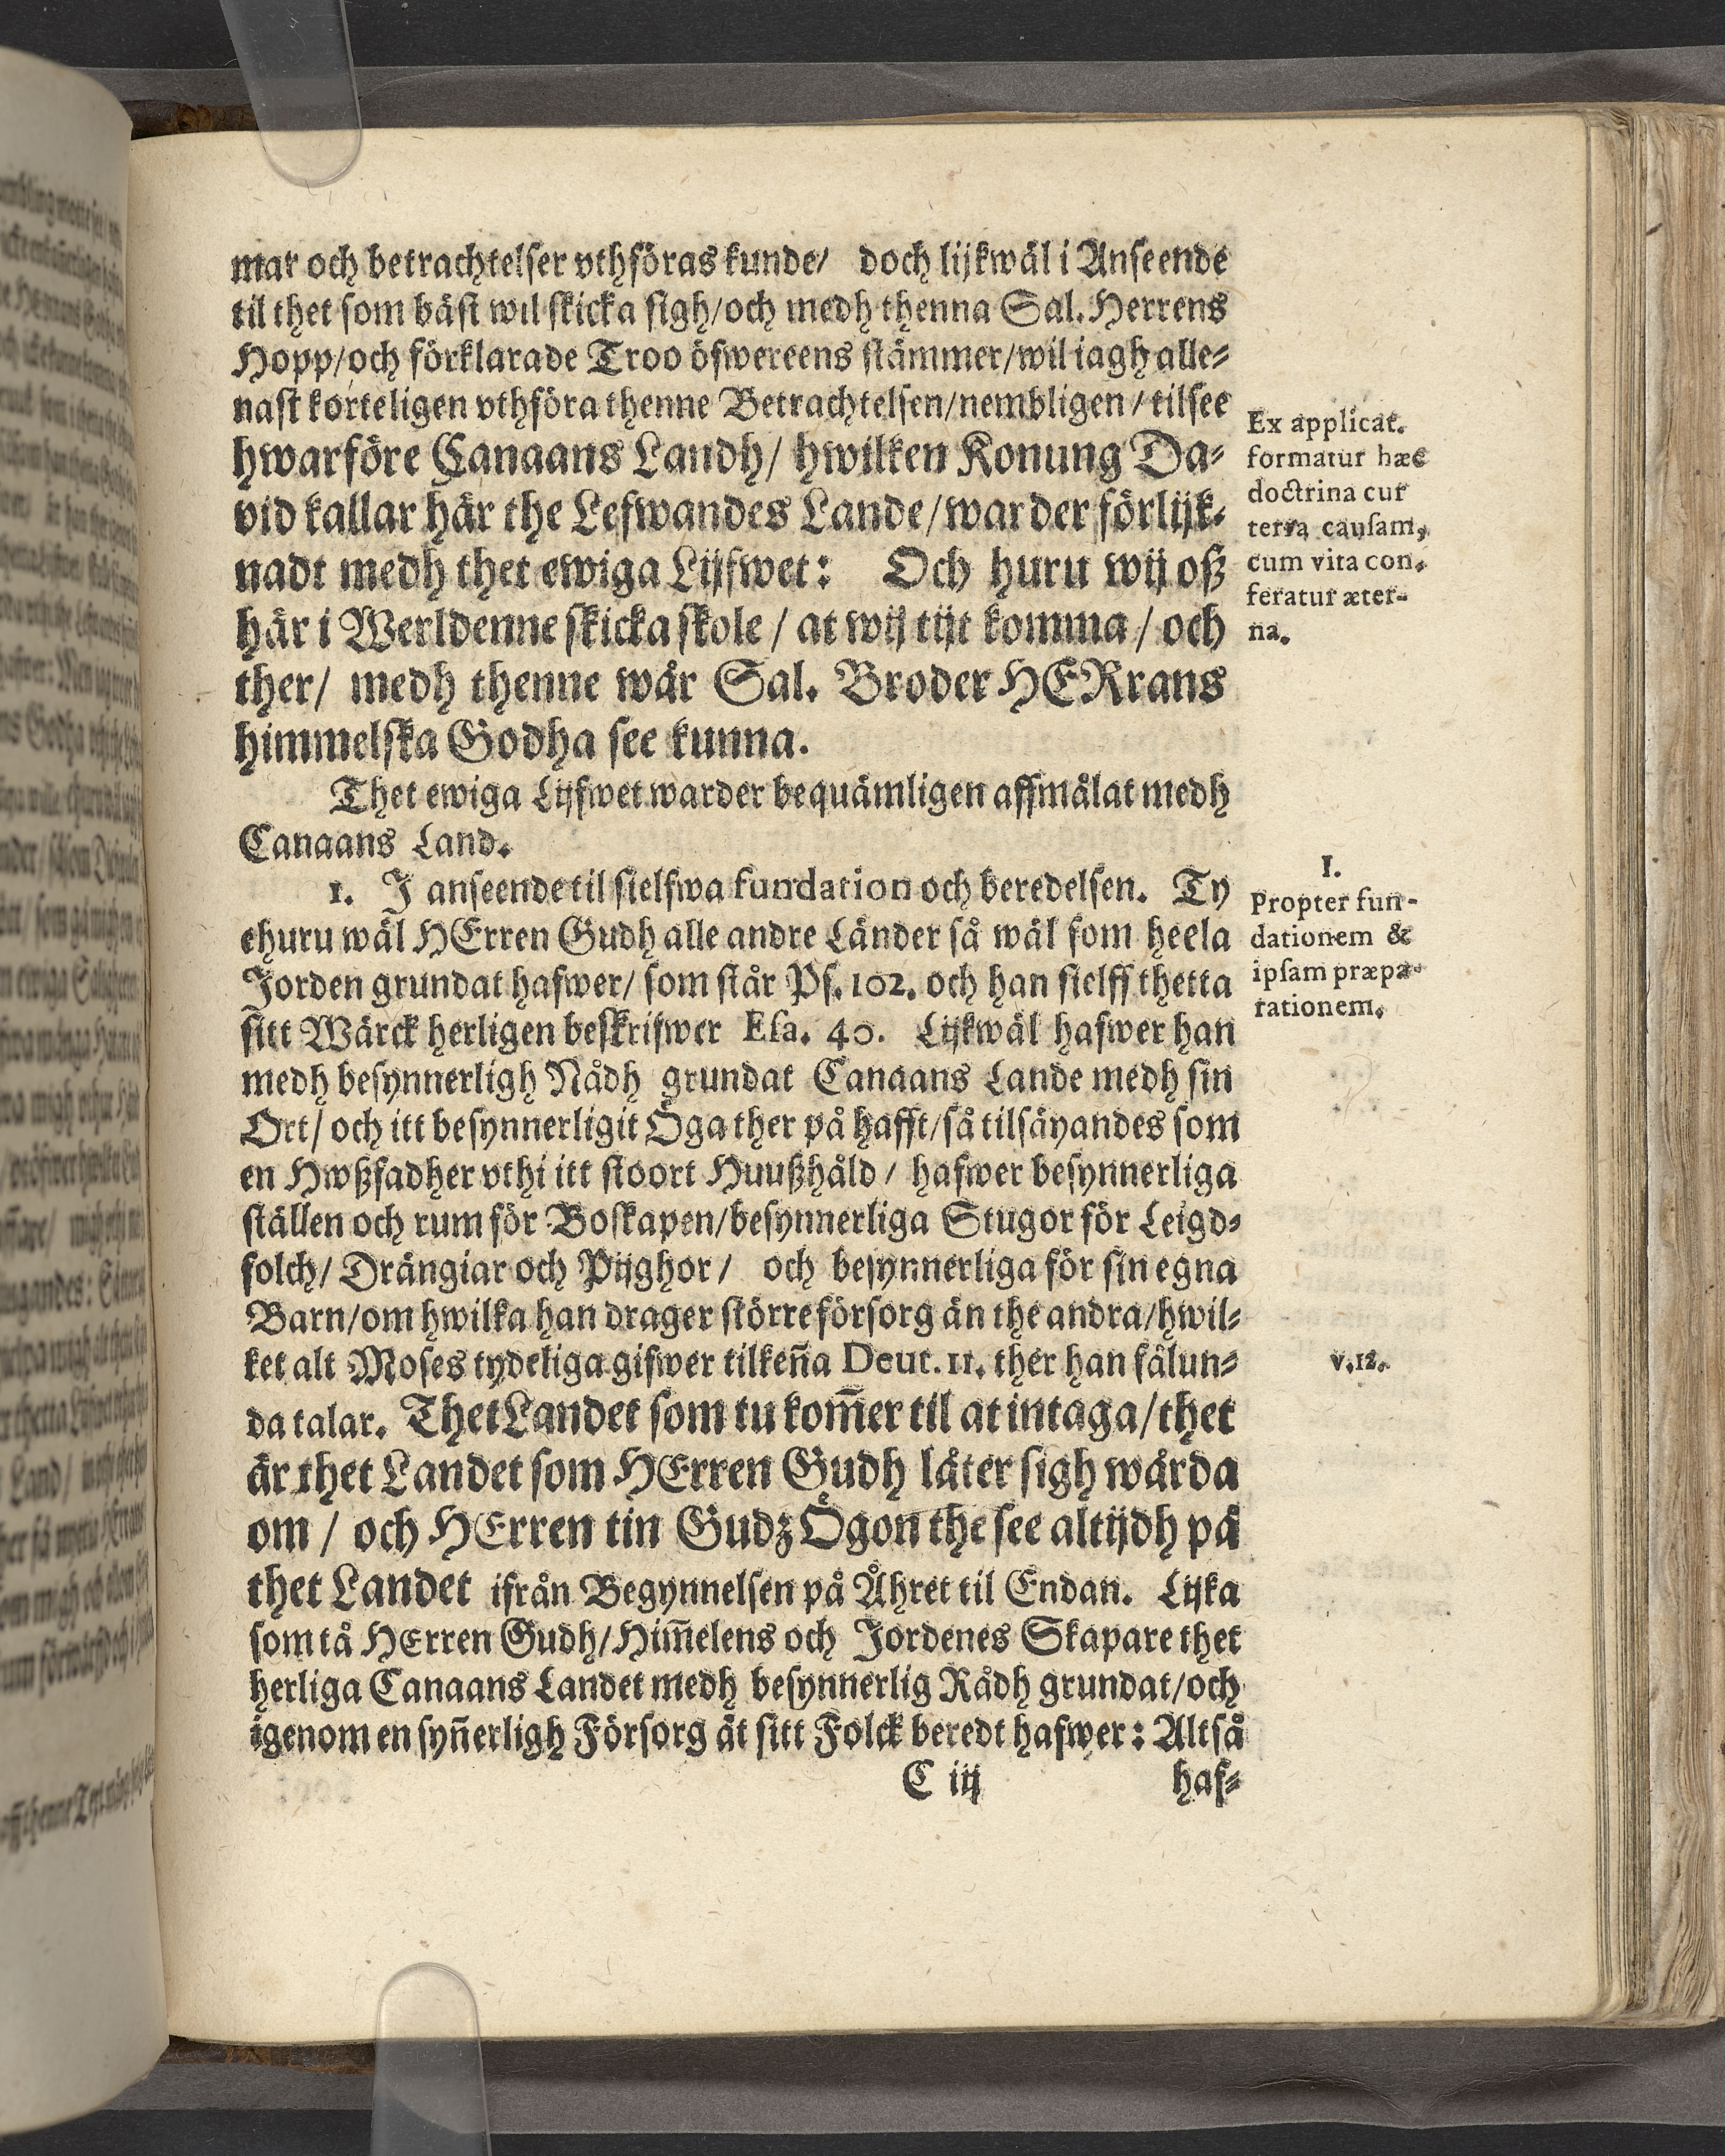 mar och betrachtelser vthföras kunde/ doch lijkwäl i Anseende
til thet som bäst wil skicka sigh/och medh thenna Sal. Herrens
Hopp/och förklarade Troo öfwereens stämmer/wil iagh alle-
nast korteligen vthföra thenne Betrachtelsen/nembligen/tilsee
hwarföre Canaans Landh/ hwilken Konung Da-
vid kallar här the Lefwandes Lande/warder förlijk-
nadt medh thet ewiga Lijfwet: Och huru wij oß
här i Werldenne skicka skole / at wij tijt komma / och
ther/ medh thenne wår Sal. Broder HERrans
himmelska Godha see kunna.
Ex applicat.
formatur hæc
doctrina cur
terra causam,
cum vita con-
feratur æter-
na.
Thet ewiga Lijfwet warder bequämligen affmålat medh
Canaans Land.
1. J anseende til sielfwa fundation och beredelsen. Ty
ehuru wäl HErren Gudh alle andre Länder så wäl som heela
Jorden grundat hafwer/ som står Ps. 102. och han sielff thetta
sitt Wärck herligen beskrifwer Esa. 40. Lijkwäl hafwer han
medh besynnerligh Nådh grundat Canaans Lande medh sin
Ort/ och itt besynnerligit Öga ther på hafft/så tilsäyandes som
en Hwßfadher vthi itt stoort Huußhåld / hafwer besynnerliga
ställen och rum för Boskapen/besynnerliga Stugor för Leigd-
folch/ Drängiar och Pijghor/ och besynnerliga för sin egna
Barn/om hwilka han drager större försorg än the andra/hwil-
ket alt Moses tydeliga gifwer tilkeña Deut. 11. ther han sålun-
da talar. Thet Landet som tu kom̃er til at intaga/thet
är thet Landet som HErren Gudh låter sigh wårda
om / och HErren tin Gudz Ögon the see altijdh på
thet Landet ifrån Begynnelsen på Åhret til Endan. Lijka
som tå HErren Gudh/Him̃elens och Jordenes Skapare thet
herliga Canaans Landet medh besynnerlig Rådh grundat/och
igenom en syñerligh Försorg åt sitt Folck beredt hafwer: Altså
I.
Propter fun-
dationem &
ipsam præpa-
rationem.
v.12.
C iij haf-